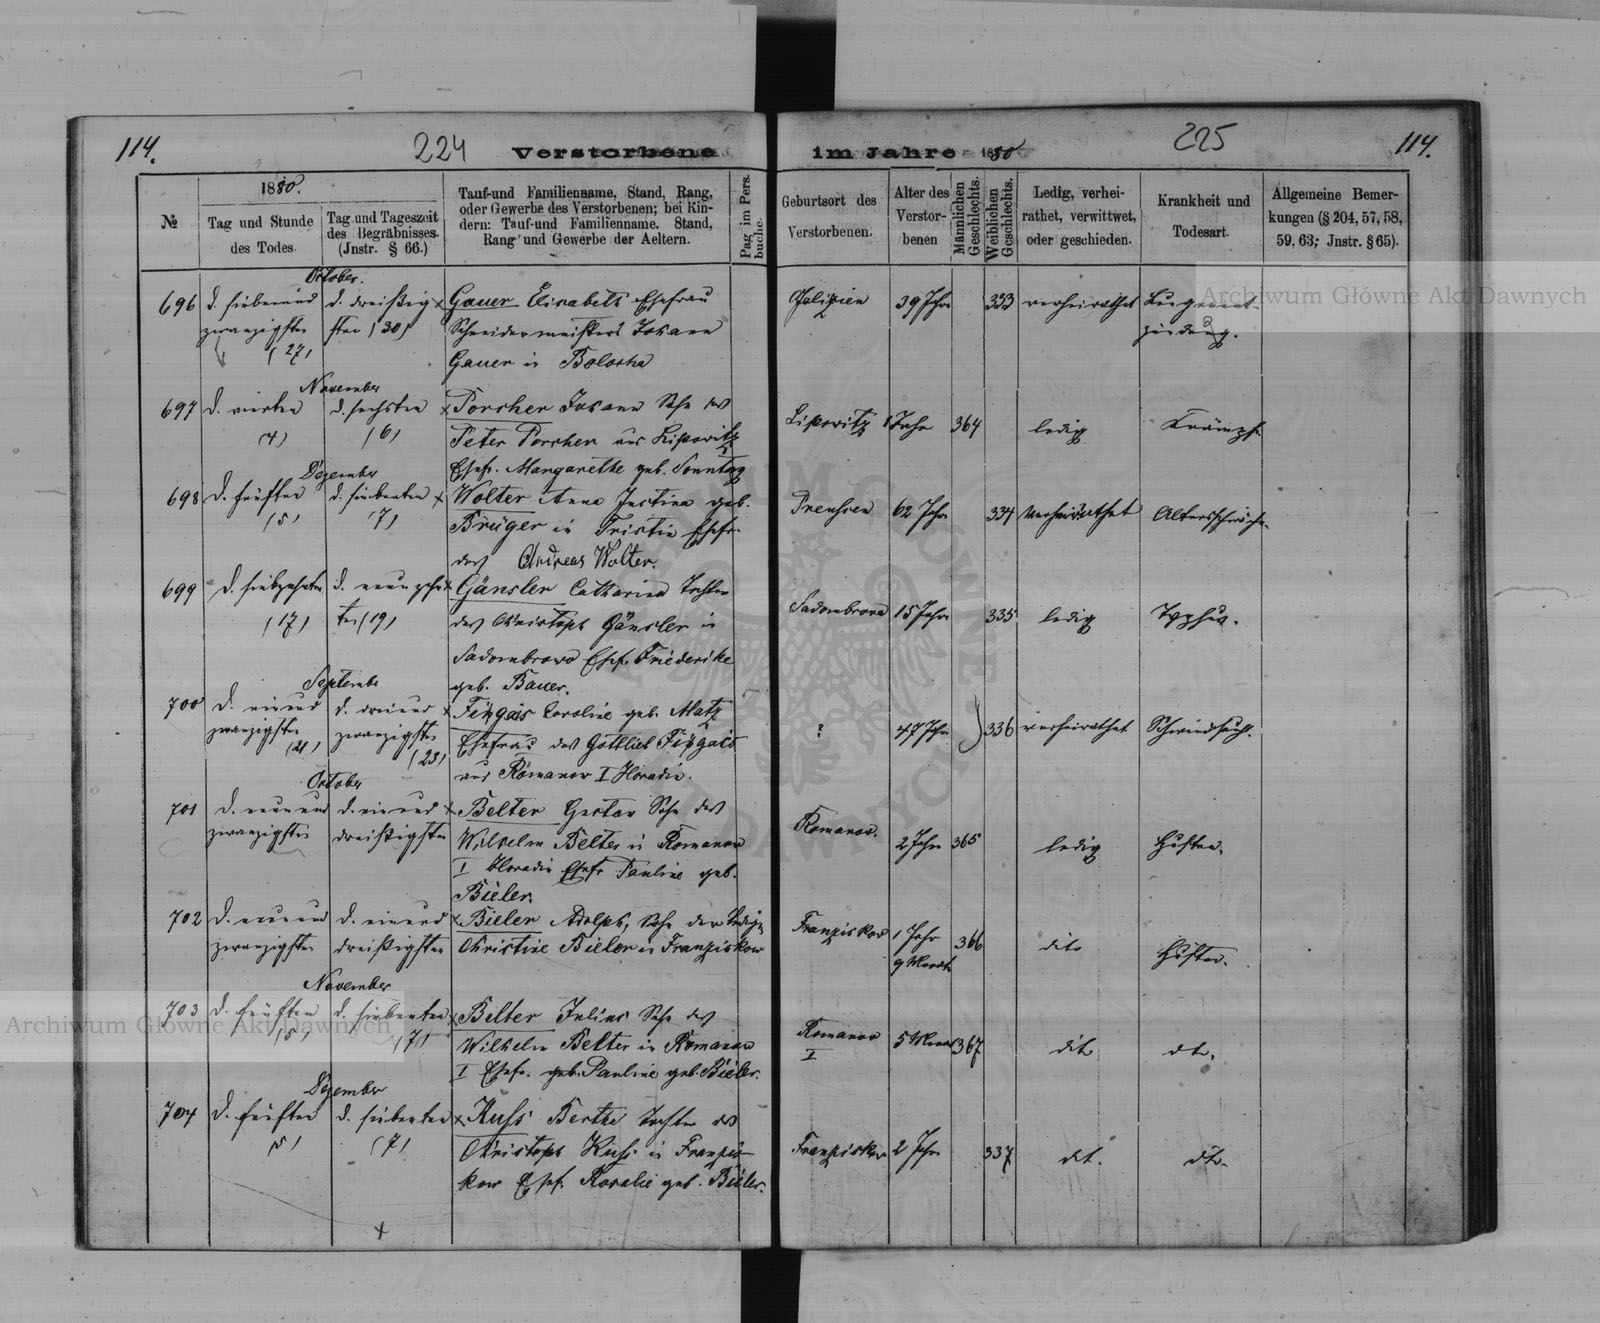 114.
224
Verstorbene
im Jahre 1880
225
114.
№
1880.
Tag und Stunde des Todes.
Tag und Tageszeit des Begräbnisses. (Jnstr. § 66.)
Tauf-und Familienname, Stand, Rang, oder Gewerbe des Verstorbenen; bei Kindern: Tauf-und Familienname. Stand, Rang und Gewerbe der Aeltern.
Pag im Pers. buche.
Geburtsort des Verstorbenen.
Alter des Verstorbenen
Männlichen Geschlechts.
Weiblichen Geschlechts.
Ledig, verheirathet, verwittwet, oder geschieden.
Krankheit und Todesart.
Allgemeine Bemerkungen (§ 204, 57, 58, 59, 63; Jnstr. § 65).
October.
696 d. siebenund d. dreißig x Gauer Elisabeth Ehefrau Galizien 39 Jahr 333 verheirathet Lungenent-
zwanzigsten sten (30) Schneidermeisters Johann zündung.
(27) Gauer in Bolocha
November
697 d. vierten d. sechsten x Porscher Johann Sohn des Lipowitz 1 Jahr 364 ledig Krämpfe
(4) (6) Peter Porscher aus Lipowitz
Ehefr. Margarethe geb. Sonntag
Dezember
698 d. fünften d. siebenten x Wolter Anna Justina geb. Preußen 62 Jahr 334 verheirathet Altersschwäche
(5) (7) Brüger in Tristin Ehefr.
des Andreas Wolter.
699 d. siebzehnten d. neunzehn x Gänsler Catharina Tochter Sadombrowa 15 Jahr 335 ledig Typhus.
(17) ten (19) des Christoph Gänsler in
Sadombrowo Ehefr. Friederike
geb. Bauer.
September
700 d. einund d. dreiund x Caroline geb. Matz ? 47 Jahr 336 verheirathet Schwindsucht.
zwanzigsten (21) zwanzigsten (23) Ehefrau des Gottlieb
aus Romanow I Horadin.
October
701 d. neunund d. einund x Belter Gustav Sohn des Romanow. 2 Jahr 365 ledig Husten.
zwanzigsten dreißigsten Wilhelm Belter in Romanow
I Horadin Ehefr Pauline geb.
Bieler.
702 d. neunund d. einund x Bieler Adolph, Sohn der ledig. Franziskow 1 Jahr 9 Monat 366 dito Husten.
zwanzigsten dreißigsten Christine Bieler in Franziskow
November
703 d. fünften d. siebenten x Belter Julius Sohn des Romanow I 5 Monat 367 dito dto.
(5) (7) Wilhelm Belter in Romanow
I Ehefr. geb. Pauline geb. Bieler.
Dezember
704 d. fünften d. siebenten x Kuss Bertha Tochter des Franziskow 2 Jahr 337 dit. dto.
(5) (7) Christoph Kuss in Franzis-
kow Ehef. Rosalie geb. Bieler.
x
Archiwum Główne Akt Dawnych
Archiwum Główne Akt Dawnych